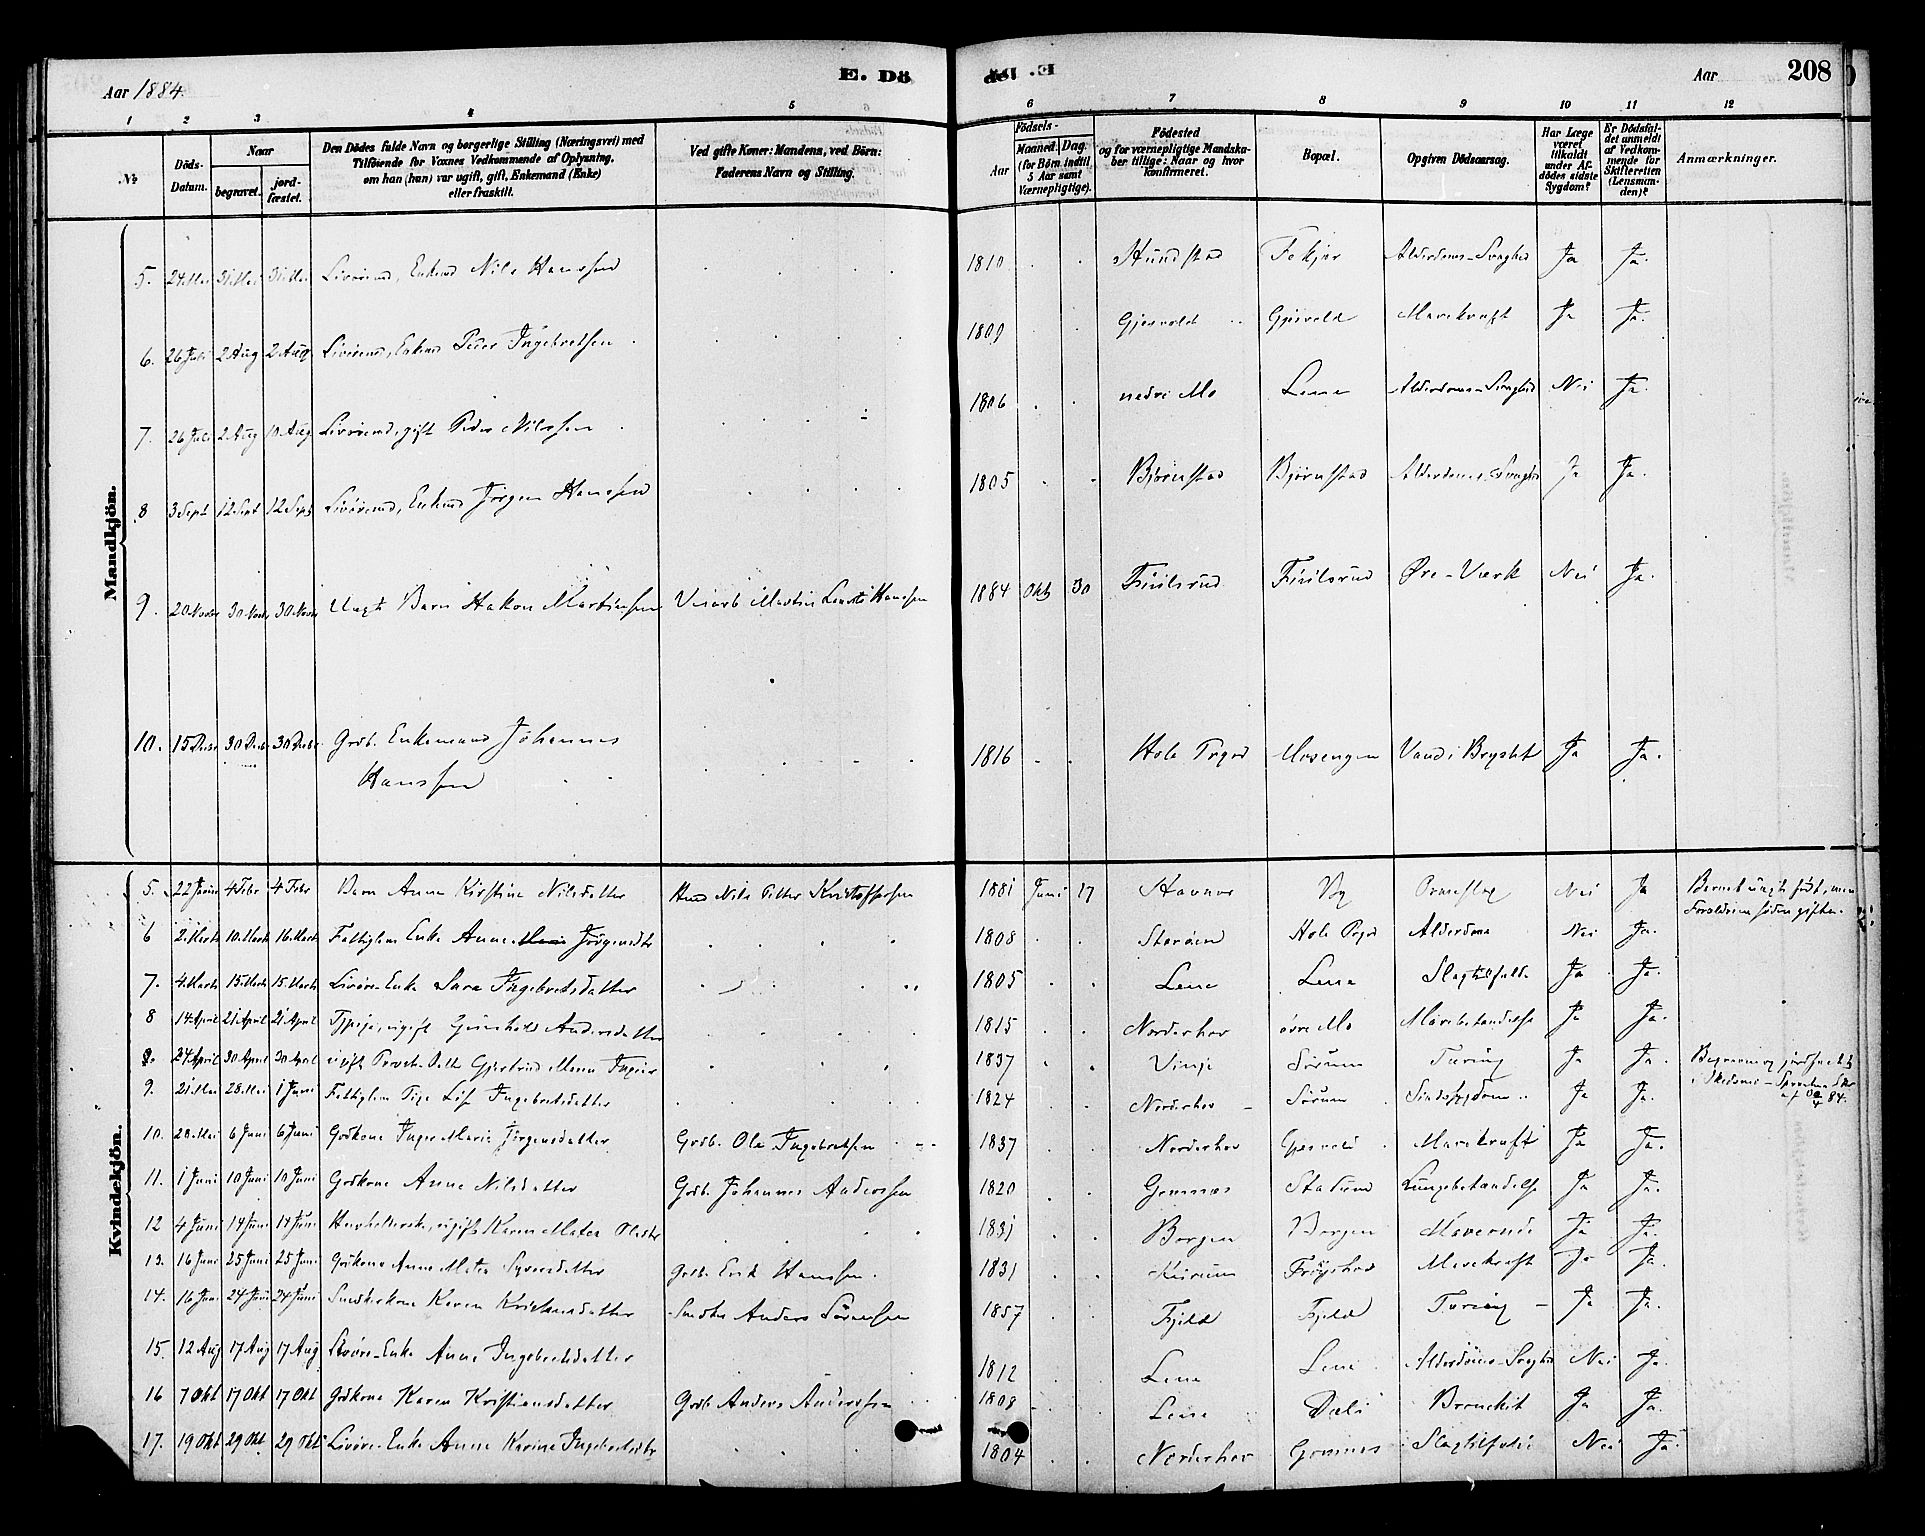 Aar 1884. E. Dö
1 2 3 4 5
№ Döds-Datum. Naar begravet. jord-fæstet. Den Dödes fulde Navn og borgerlige Stilling (Næringsvei) med Tilföiende for Voxnes Vedkommende af Oplysning, om han (hun) var ugift, gift, Enkemand (Enke) eller fraskilt. Ved gifte Koner: Mandens, ved Börn: Faderens Navn og Stilling.
E. Dö Aar 208
6 7 8 9 10 11 12
Födsels- Aar Maaned. Dag. (for Börn indtil 5 Aar samt Værnepligtige). Födested og for værnepligtige Mandskaber tillige: Naar og hvor konfirmeret. Bopæl. Opgiven Dödsaarsag. Har Læge været tilkaldt under Afdödes sidste Sygdom? Er Dödsfaldet anmeldt af Vedkommende for Skifteretten (Lensmanden)? Anmærkninger.
Mandkjön.
5. 24 Mai 31 Mai 31 Mai Livörend, Enkmd Nils Hanssen 1810 Hundstad Fekjær Alderdoms-Svaghed Ja Ja.
6. 26 Juli 2 Aug 2 Aug Livörend, Enkmd Peder Ingebretsen 1809 Gjesvold Gjesvold Marekraft Ja Ja.
7. 26 Juli 2 Aug 10 Aug Livörend, gift Peder Nilssen 1806 nedre Mo Lene Alderdoms-Svaghed Nei Ja.
8 3 Sept 12 Sept 12 Sept Livörend, Enkmd Jörgen Hanssen 1805 Björnstad Björnstad Alderdoms-Svaghed Ja Ja.
9. 20 Novbr 30 Novb 30 Novbr Uægt Barn Hakon Martinsen Martin Hanssen 1884 Okt 30 Øre-Værk Nei Ja.
10. 15 Decbr 30 Decbr 30 Decbr Grdb. Enkemand Johannes
Hanssen 1816 Hole Prgjd Mosengen Vand i Brystet Ja Ja.
Kvindekjön.
5. 22 4 Febr 4 Febr Barn Anne Kirstine Nilsdatter Husmd Nils Petter Kristoffersen 1881 Juni 17 Stavnes By Nei Ja Barnet uægte födt, men
Forældrene siden gifte.
6 2 Marts 10 Marts 16 Marts Fattiglem Enke Anne Jörgensdtr 1808 Storöen Hole Prgjd Alderdom Nei Ja.
7. 4 Marts 15 Marts 15 Marts Livöre-Enke Sara Ingebretsdatter 1805 Lene Lene Slagtilfælde Ja Ja.
8 14 April 21 April 21 April ugift Gunhild Andersdatter 1815 Norderhov övre Mo Mavebetændelse Ja Ja.
24 April 30 April 30 April ugift Gjertrud 1837 Vinje Sörum Tæring Ja Ja.
9. 21 Mai 28 Mai 1 Juni Fattiglem Pige Lise Ingebretsdatter 1824 Norderhov Sörum Sindssygdom Ja Ja.
10. 28 Mai 6 Juni 6 Juni Grdkone Inger Marie Jörgensdatter Grdb. Ole Ingebretsen 1837 Norderhov Gjesvold Mavekræft Ja Ja.
11. 1 Juni 10 Juni 10 Juni Grdkone Anne Nilsdatter Grdb. Johannes Anderssen 1820 Gomnæs Stadum Lungebetændelse Ja Ja.
12 4 Juni 14 Juni 14 Juni ugift Karen Matea Olsdtr 1831 Borgen Borgen Ja Ja.
13. 16 Juni 25 Juni 25 Juni Grdkone Anne Matea Syversdatter Grdb. Erik Hanssen. 1831 Fröyshov Mavekræft Ja Ja.
14. 16 Juni 24 Juni 24 Juni Smedkone Karen Kristensdatter Smed Anders Sörensen 1857 Fjeld Fjeld Tæring Ja Ja.
15. 12 Aug 17 Aug 17 Aug Livöre-Enke Anne Ingebretsdatter 1812 Lene Lene Alderdoms-Svaghed Nei Ja.
16 7 Okt 17 Okt 17 Okt Grdkone Karen Kristiansdatter Grdb. Anders Anderssen 1808 Lene Dæli Bronchit Ja Ja.
17. 19 Okt 29 Okt 29 Okt Livöre-Enke Anne Karine Ingebretsdtr 1804 Norderhov Gomnæs Slagtilfælde Nei Ja.